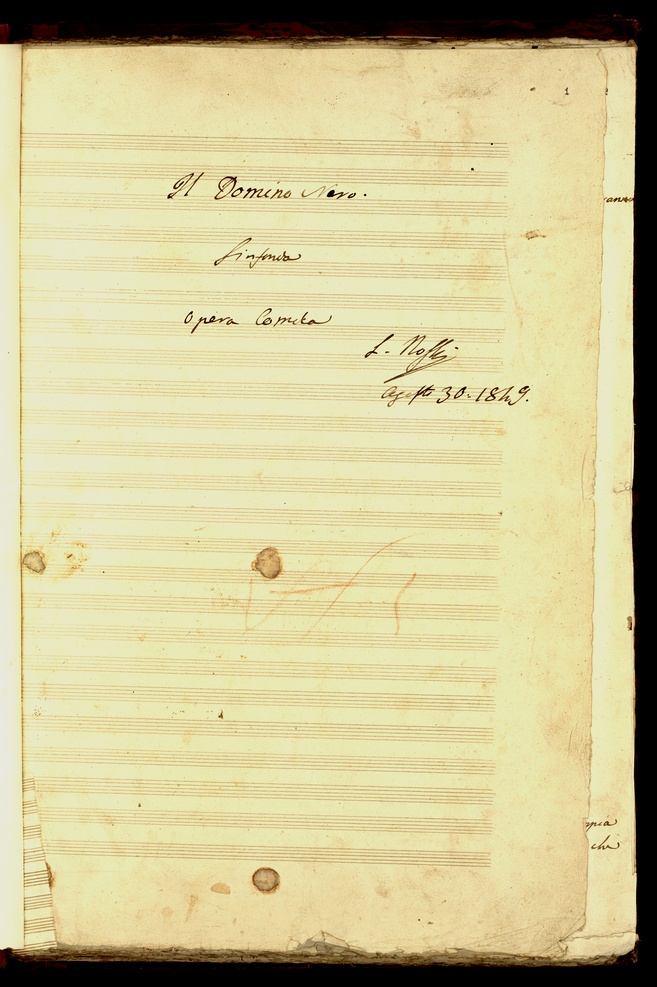 1
Il Domino Nero.
Sinfonia
Opera Comica
L. Rossi
Agosto 30. 1849.
mpia
che